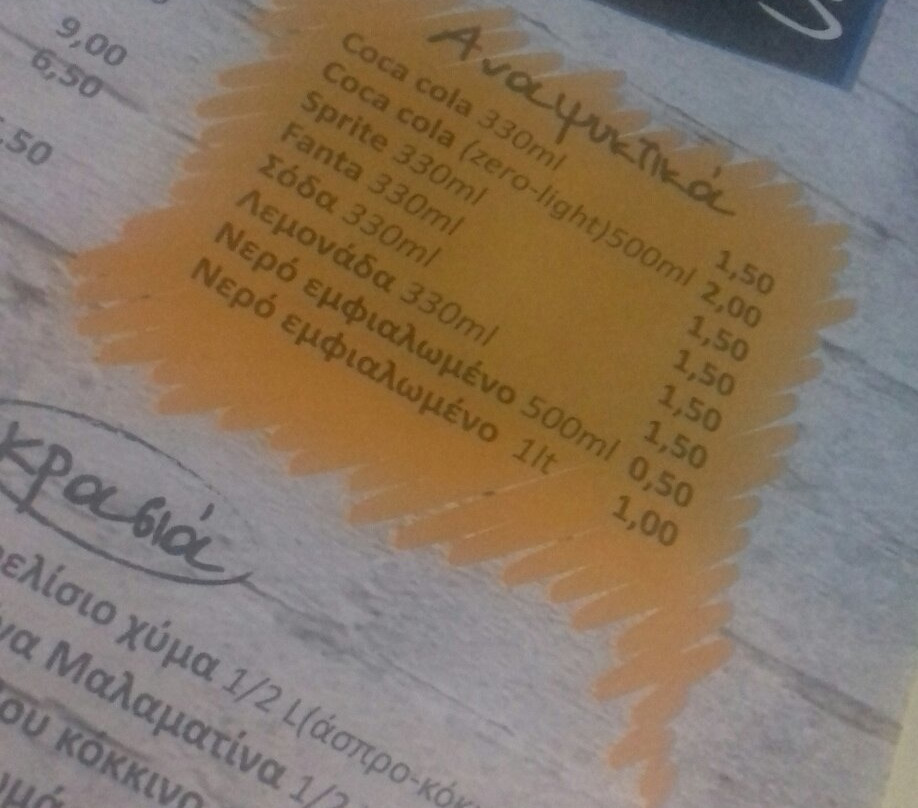 9,00
6,50
,50
Αναψυκτικά
Coca cola 330ml 1,50
Coca cola (zero-light)500ml 2,00
Sprite 330ml 1,50
Fanta 330ml 1,50
Σόδα 330ml 1,50
Λεμονάδα 330ml 1,50
Νερό εμφιαλωμένο 500ml 0,50
Νερό εμφιαλωμένο 1lt 1,00
κρασιά
ελίσιο χύμα 1/2 L(άσπρο-κόκ
να Μαλαματίνα 1/2
ου κόκκινο